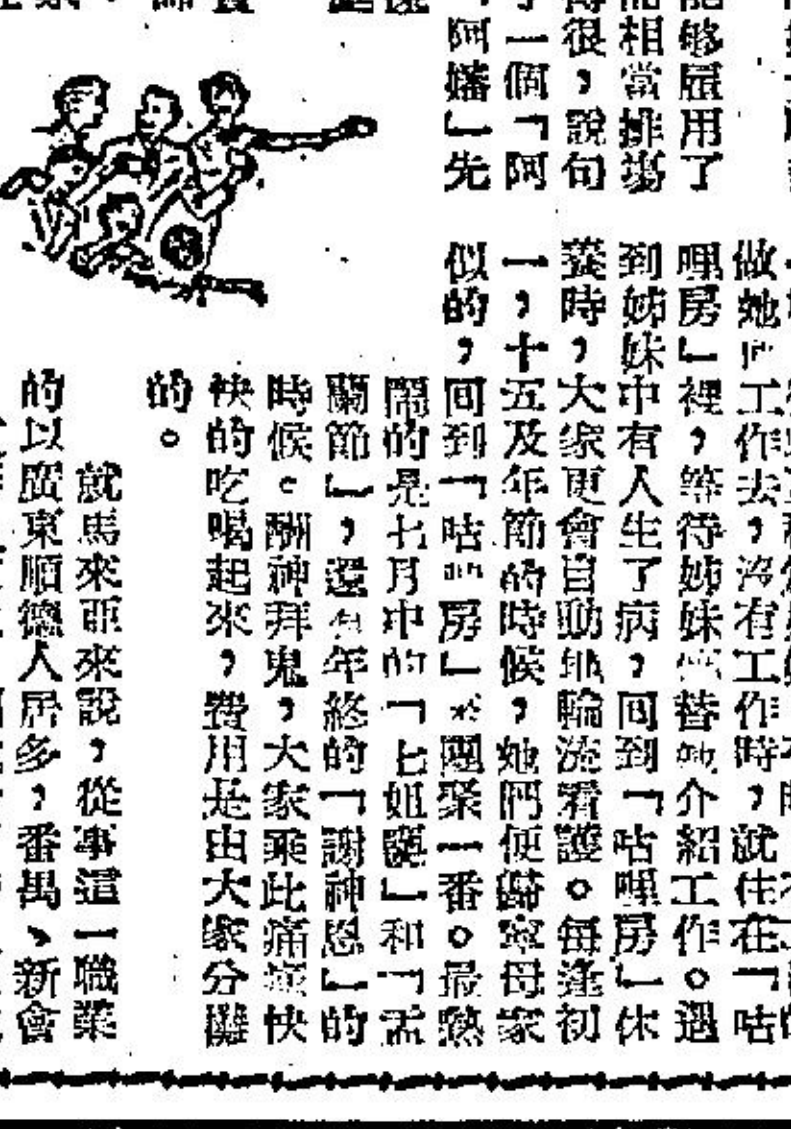 够雇用了
相當排塲
很,說句
一個「阿
阿嬸」先
做她工作去,沒有工作時,就住在「咕
哩房」裡,等待姊妹替她介紹工作。遇
到姊妹中有人生了病,回到「咕哩房」休
養時,大家更會自動地輪流看護。每逢初
一,十五及年節的時候,她們便歸寧母家
似的,回到「咕哩房」來團聚一番。最熱
鬧的是七月中的「七姐誕」和「盂
蘭節」,還有年終的「謝神恩」的
時候。酬神拜鬼,大家乘此痛痛快
快的吃喝起來,費用是由大家分攤
的。
就馬來亞來說,從事這一職業
的以廣東順德人居多,番禺、新會